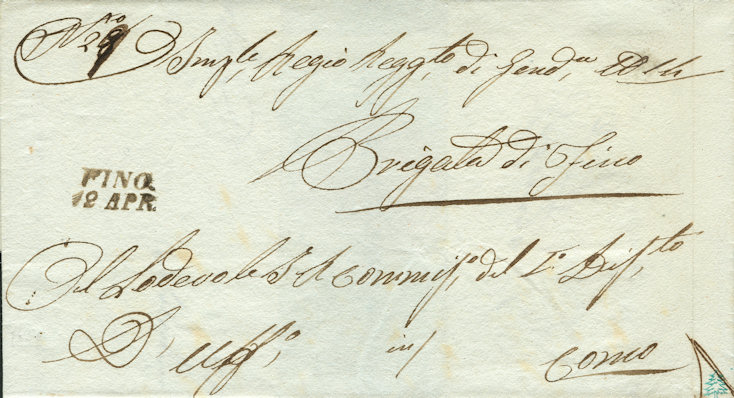 N.ro 29 Imp.le Regio Regg.to di Gend.a N. 14
Brigata di Fino
FINO.
12 APR.
Al Lodevole I. R. Commiss.o del I.o Dist.to
D'Uff.o in/ Como